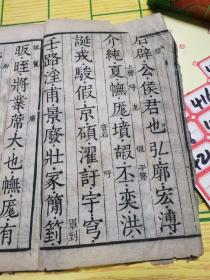 后辟公侯君也。弘廓宏溥
介純夏幠厖墳嘏丕奕洪
誕戎駿假京碩濯訏宇穹
壬路淫甫景廢壯冢簡箌
昄晊將業席大也。幠厖有